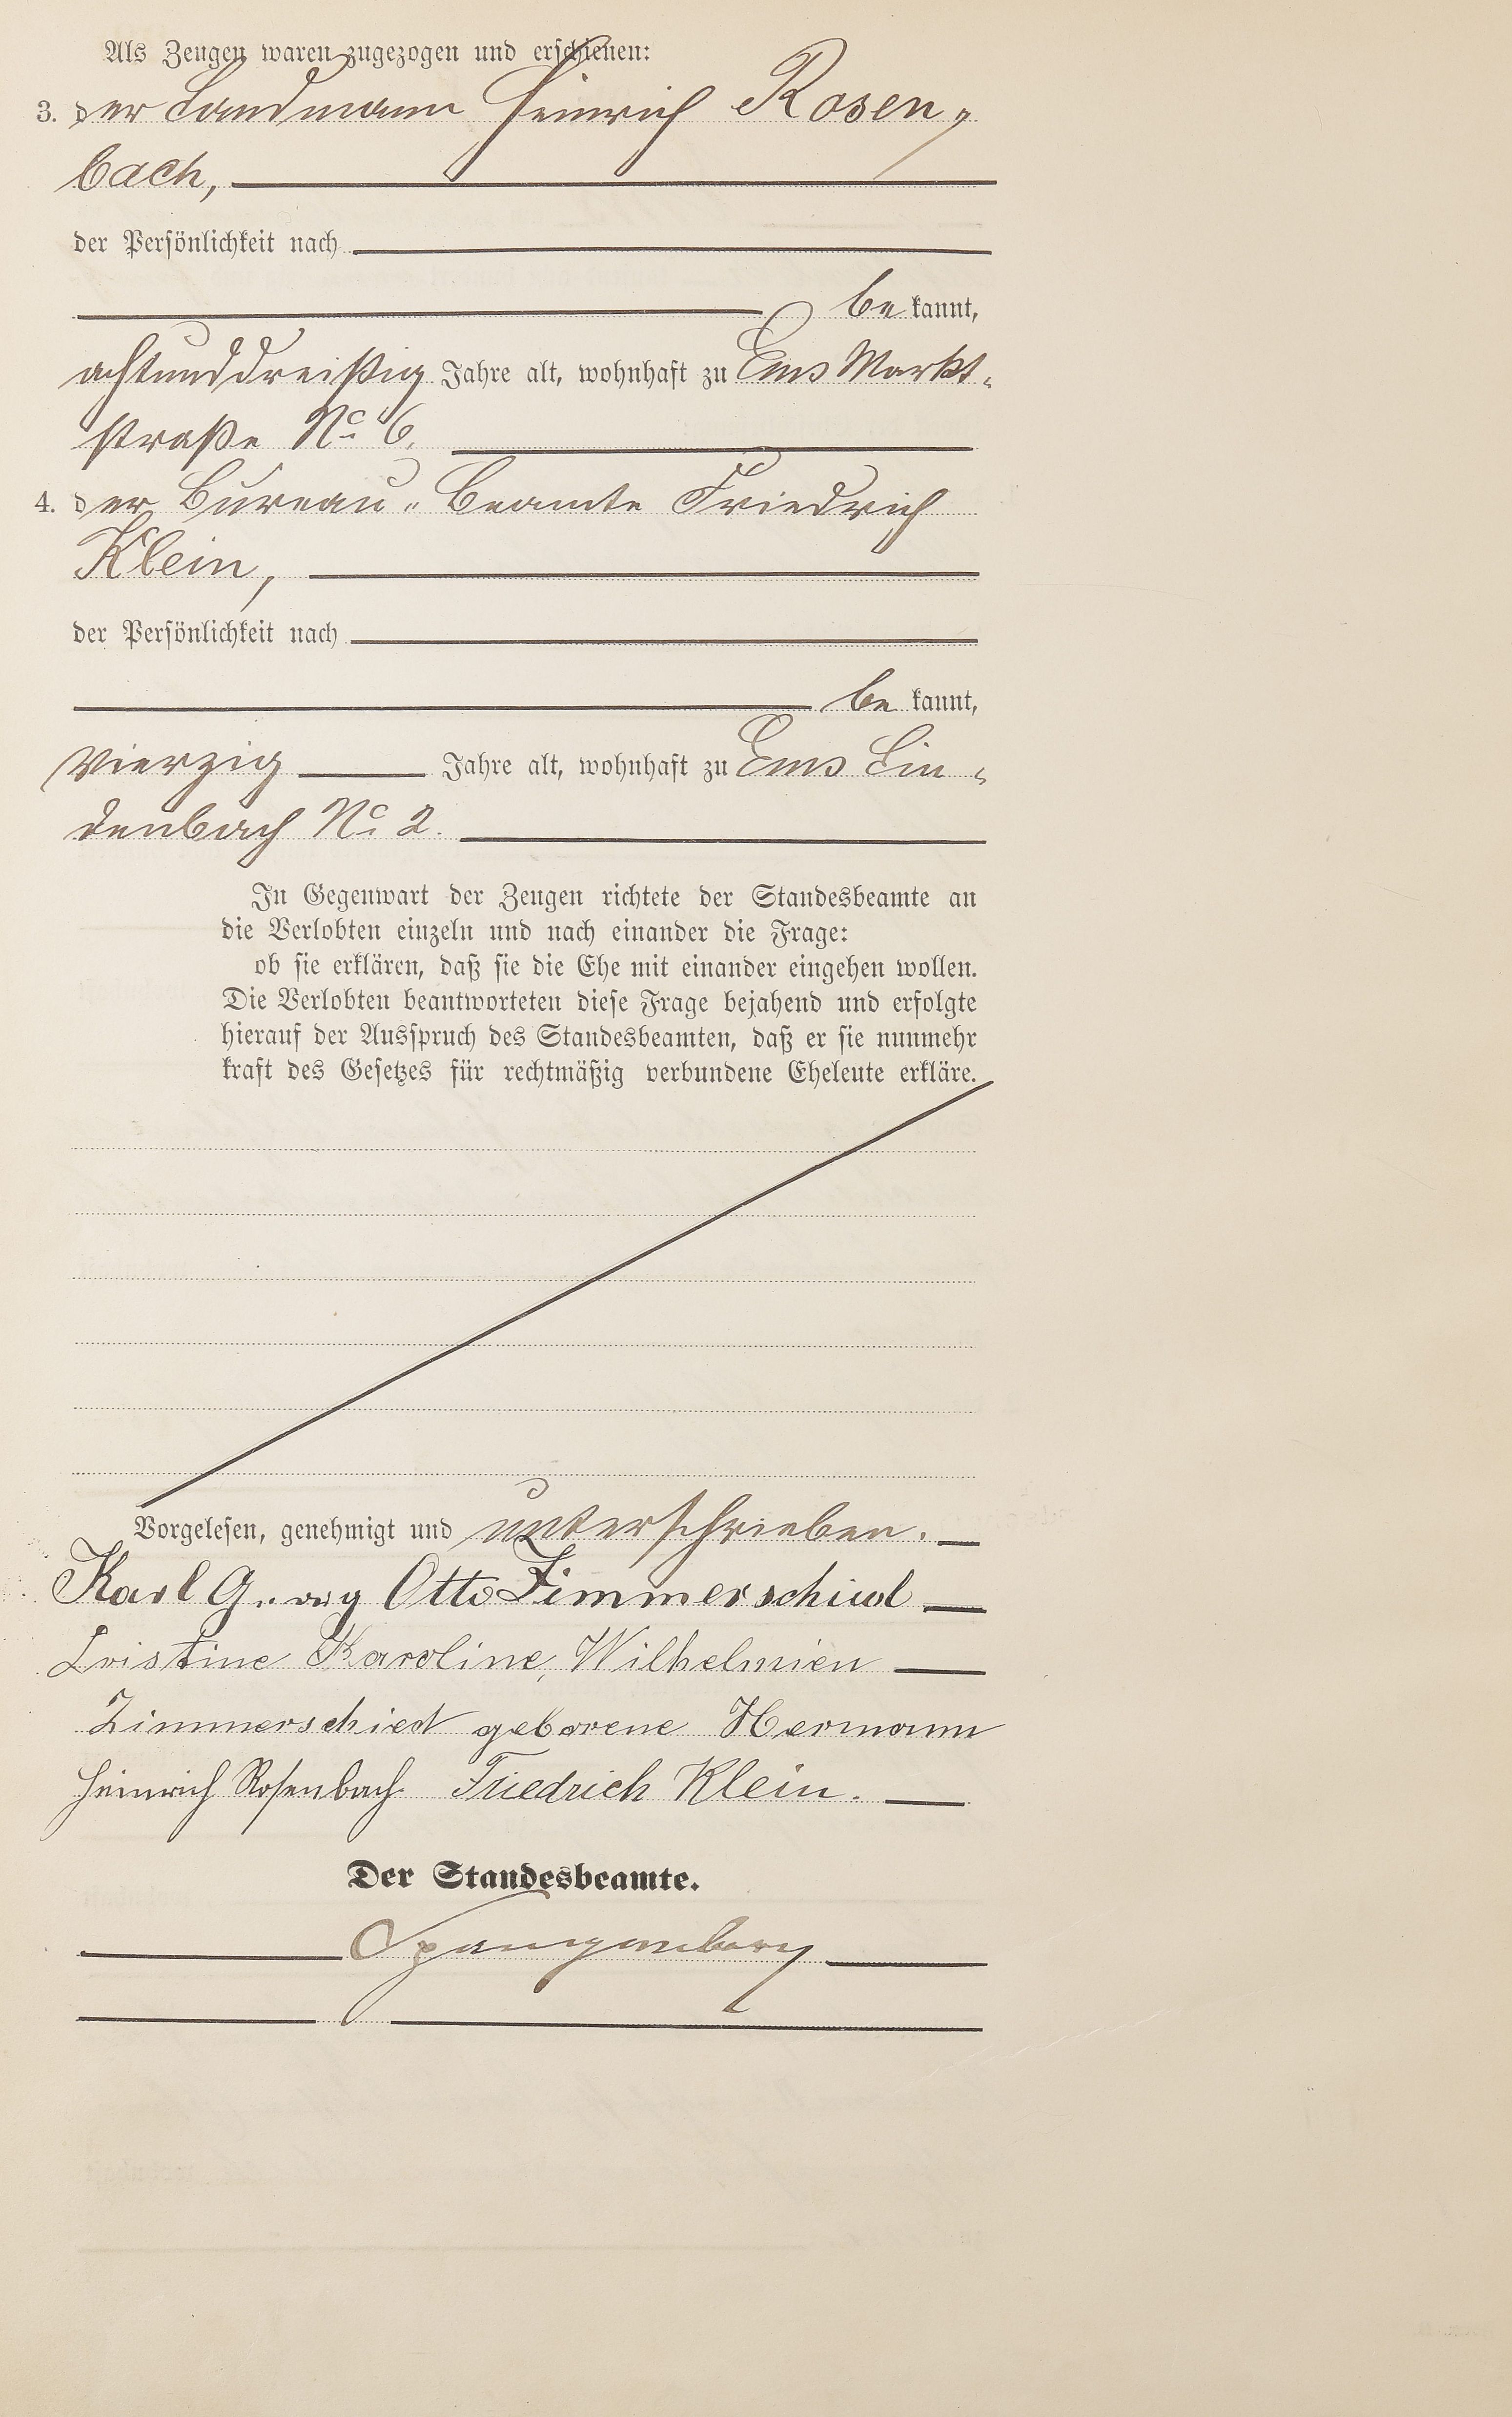 Als Zeugen waren zugezogen und erschienen:
3. der Landmann Heinrich Rosen-
bach,
der Persönlichkeit nach
be kannt,
achtunddreißig Jahre alt, wohnhaft zu Ems Markt-
straße No 6.
4. der Bureau-Beamte Friedrich
Klein,
der Persönlichkeit nach
be kannt,
vierzig Jahre alt, wohnhaft zu Ems Lin-
denbach No 2.
In Gegenwart der Zeugen richtete der Standesbeamte an
die Verlobten einzeln und nach einander die Frage:
ob sie erklären, daß sie die Ehe mit einander eingehen wollen.
Die Verlobten beantworteten diese Frage bejahend und erfolgte
hierauf der Ausspruch des Standesbeamten, daß er sie nunmehr
kraft des Gesetzes für rechtmäßig verbundene Eheleute erkläre.
Vorgelesen, genehmigt und unterschrieben.
Karl Georg Otto Zimmerschied
Kristine Karoline, Wilhelmien
Zimmerschied geborene Hermann
Heinrich Rosenbach Friedrich Klein.
Der Standesbeamte.
Spangenberg